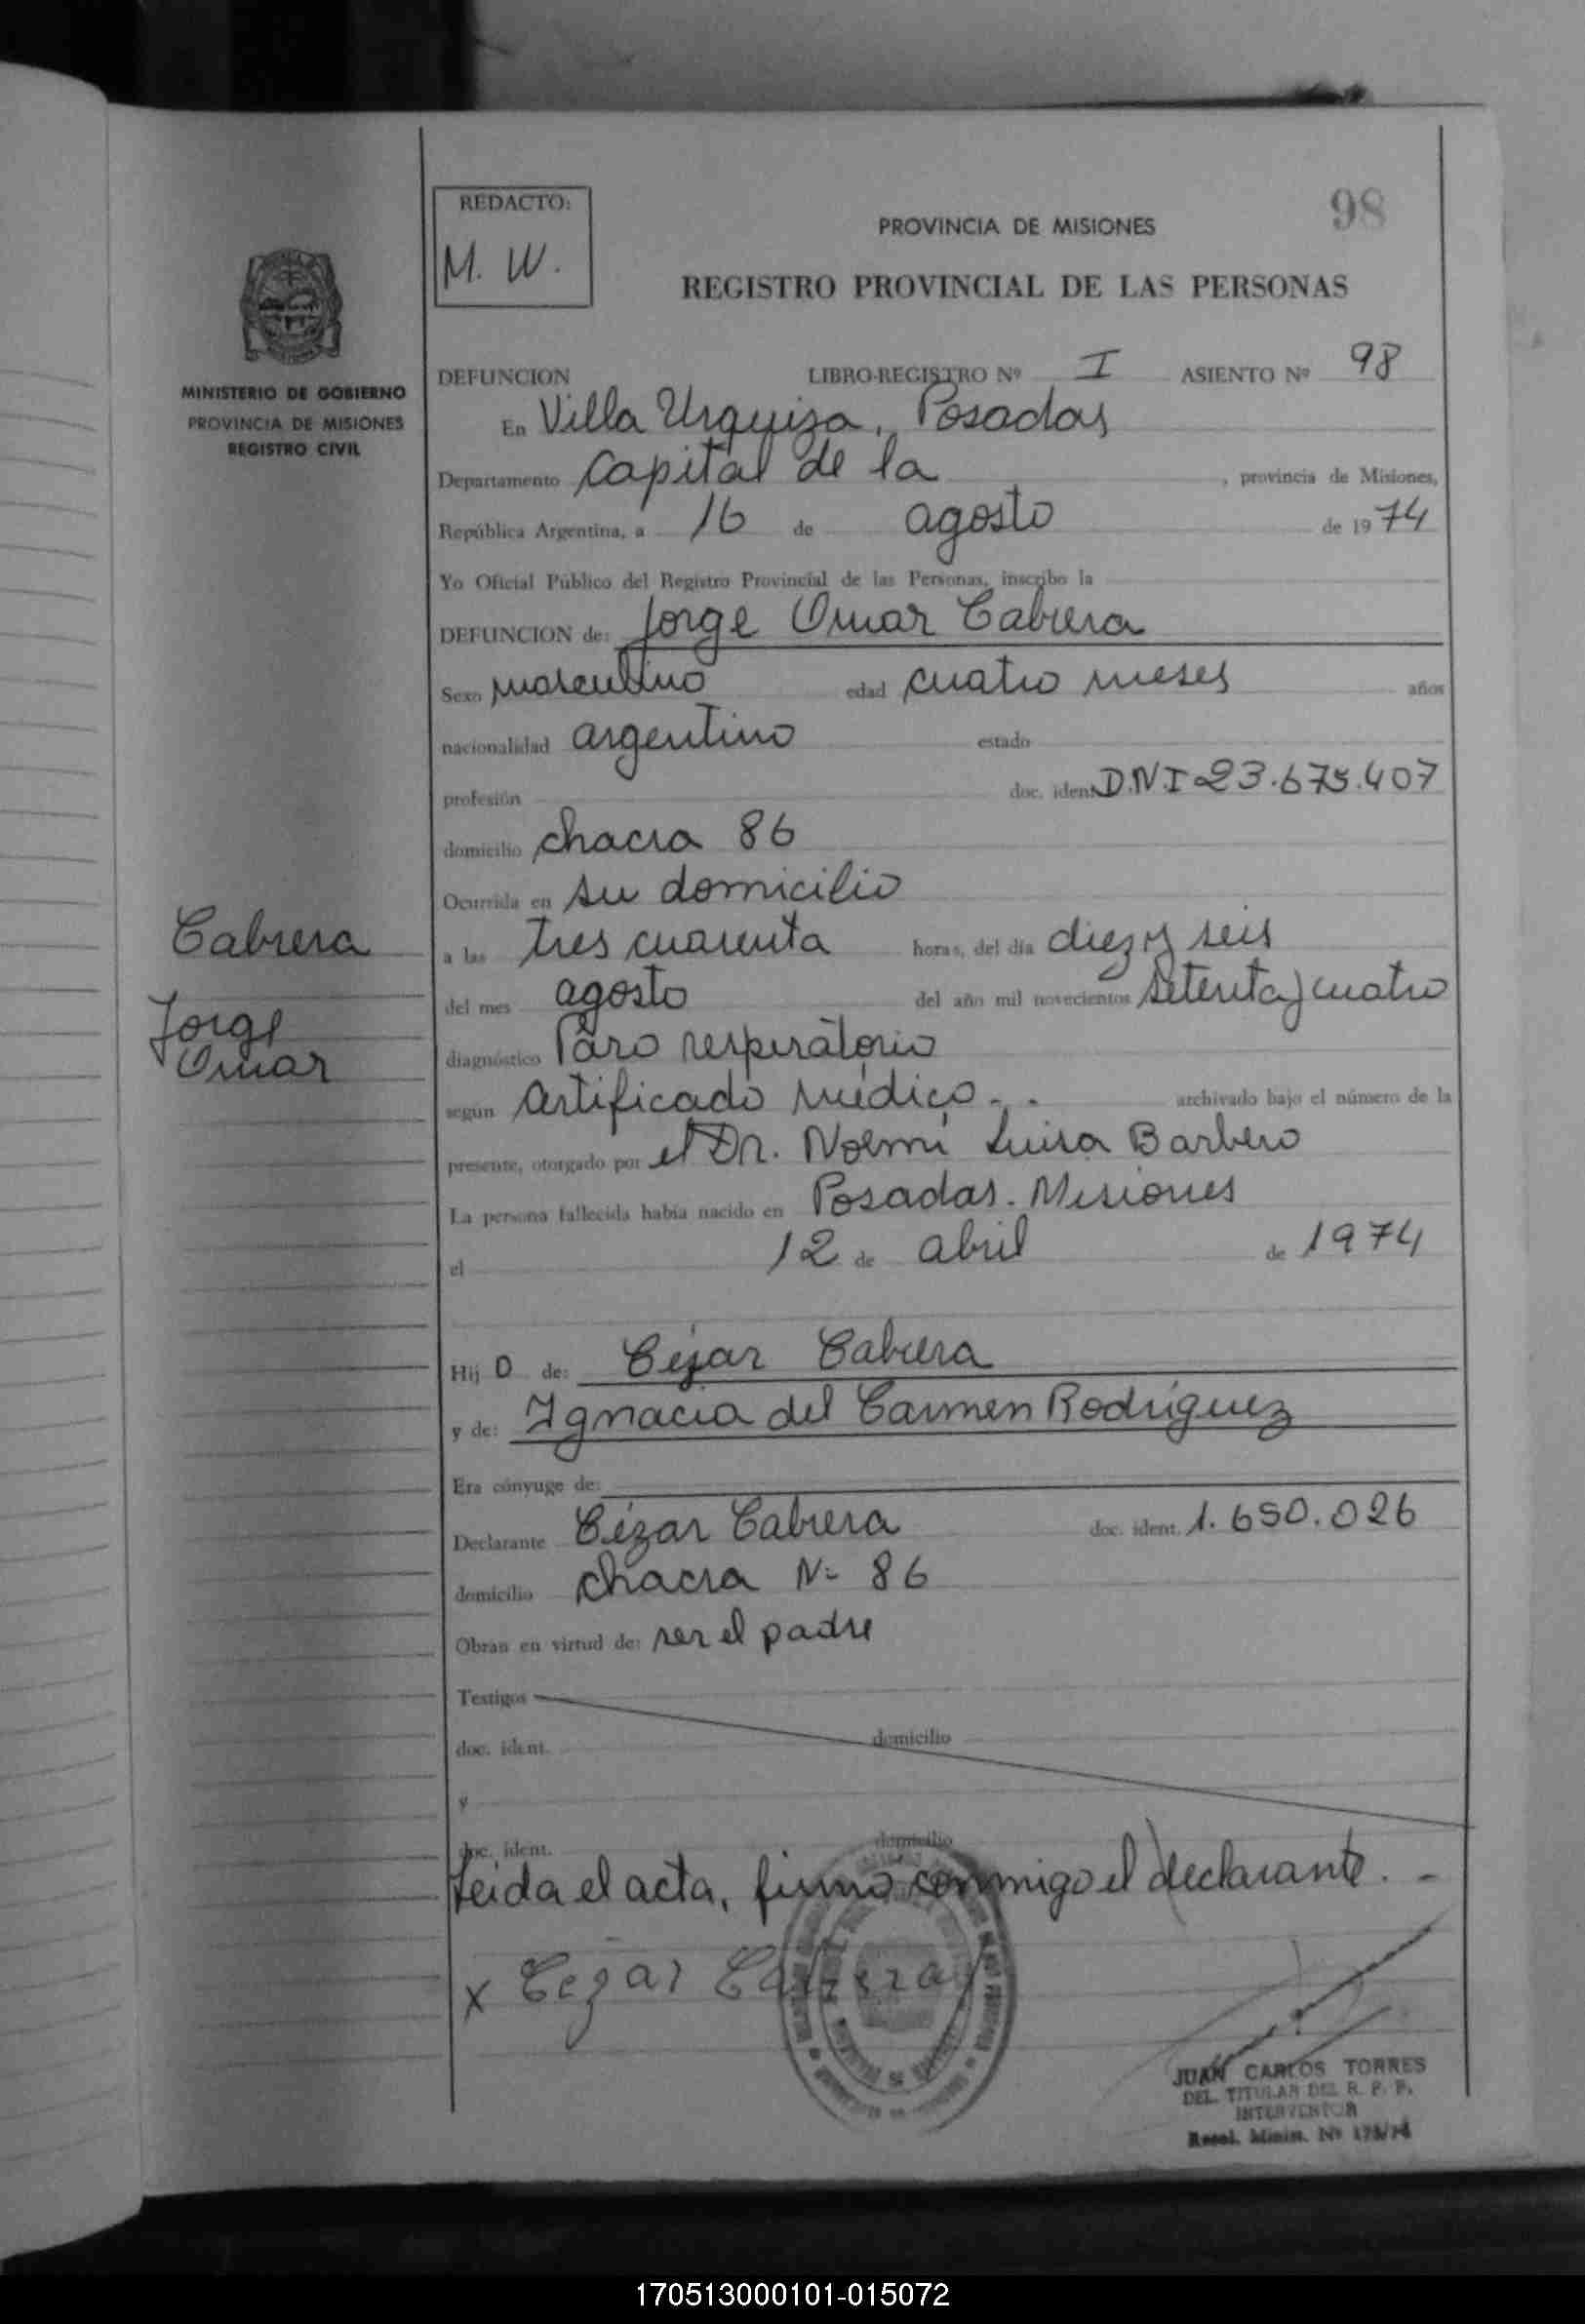 98
REDACTO:
M. W.
PROVINCIA DE MISIONES
REGISTRO PROVINCIAL DE LAS PERSONAS
MINISTERIO DE GOBIERNO
PROVINCIA DE MISIONES
REGISTRO CIVIL
DEFUNCION LIBRO-REGISTRO Nº I ASIENTO Nº 98
En Villa Urquiza, Posadas
Departamento Capital de la , provincia de Misiones,
República Argentina, a 16 de agosto de 1974
Yo Oficial Público del Registro Provincial de las Personas, inscribo la
DEFUNCION de: Jorge Omar Cabrera
Sexo masculino edad cuatro meses años
nacionalidad argentino estado
profesión doc. ident. D.N.I 23.675.407
domicilio chacra 86
Ocurrida en su domicilio
Cabrera
Jorge
Omar
a las tres cuarenta horas, del día diez y seis
del mes agosto del año mil novecientos setenta y cuatro
diagnóstico Paro respiratorio
según certificado médico - . archivado bajo el número de la
presente, otorgado por el Dr. Noemí Luisa Barbero
La persona fallecida había nacido en Posadas. Misiones
el 12 de abril de 1974
Hij o de: César Cabrera
y de: Ignacia del Carmen Rodríguez
Era cónyuge de:
Declarante Cézar Cabrera doc. ident. 1.650.026
domicilio chacra Nº 86
Obran en virtud de: ser el padre
Testigos
doc. ident. domicilio
y
doc. ident. domicilio
Leida el acta, firma conmigo el declarante. -
x Cezar Cabrera
JUAN CARLOS TORRES
DEL. TITULAR DEL R. P. P.
INTERVENTOR
Resol. Minis. Nº 175/74
170513000101-015072